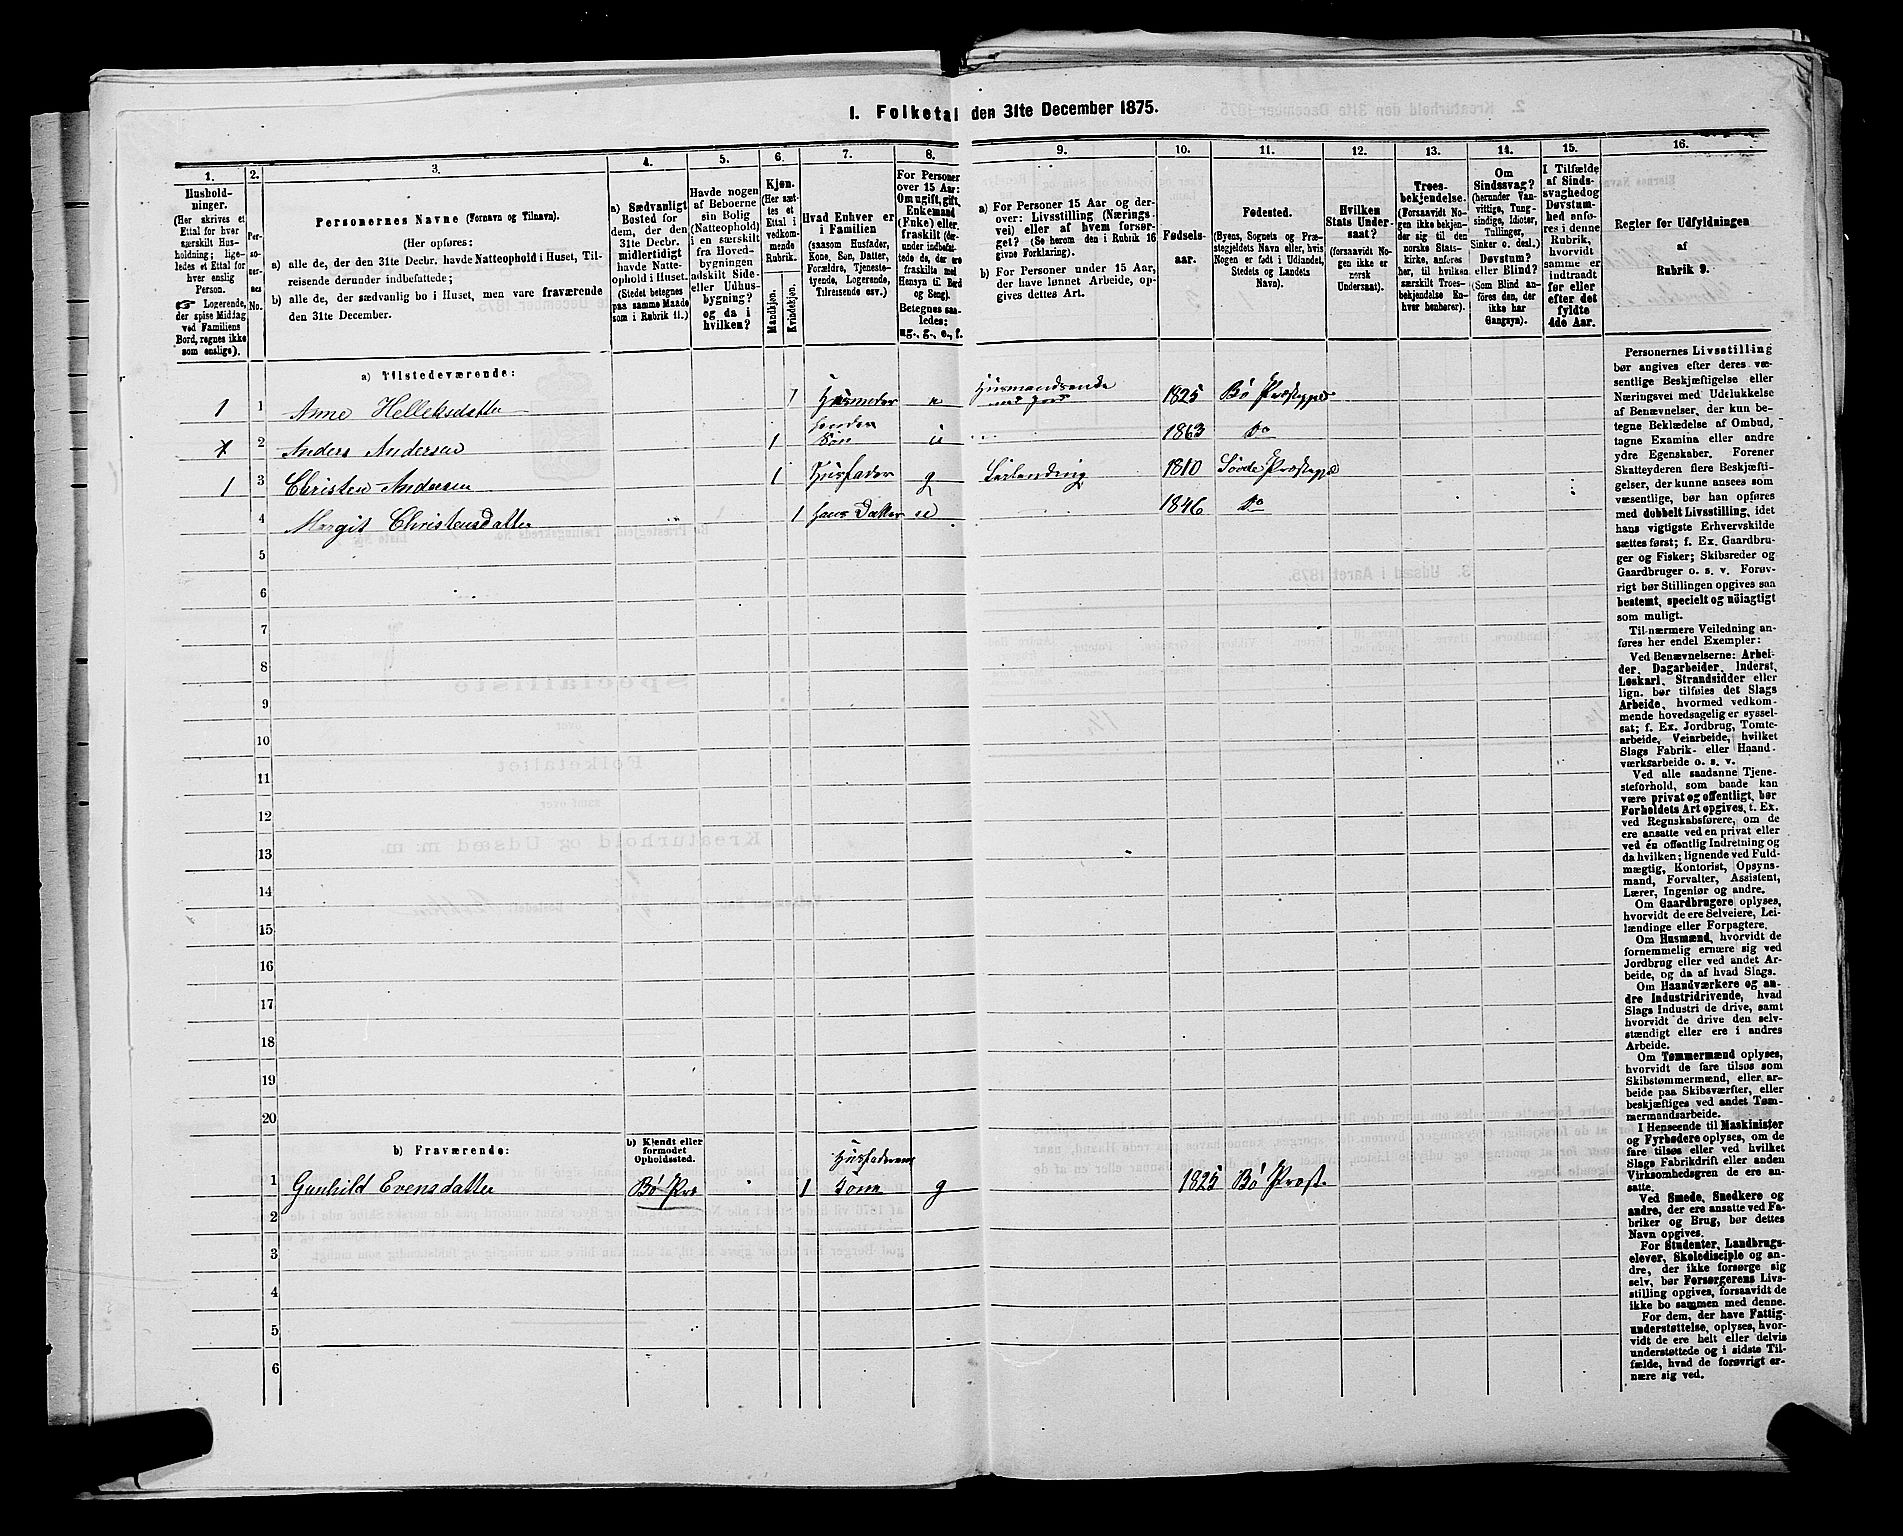 1. Folketal den 31te December 1875.
1.
Hushold-
ninger.
(Her skrives et
Ettal for hver
særskilt Hus-
holdning; lige-
ledes et Ettal for
hver enslig
Person.
☞ Logerende,
der spise Middag
ved Familiens
Bord, regnes ikke
som enslige).
2.
Per-
so-
ner-
nes
No.
3.
Personernes Navne (Fornavn og Tilnavn).
(Her opføres:
a) alle de, der den 31te Decbr. havde Natteophold i Huset, Til-
reisende derunder indbefattede;
b) alle de, der sædvanlig bo i Huset, men vare fraværende
den 31te December.
4.
a) Sædvanligt
Bosted for
dem, der den
31te Decbr.
midlertidigt
havde Natte-
ophold i Huset.
(Stedet betegnes
paa samme Maade
som i Rubrik 11.)
5.
Havde nogen
af Beboerne
sin Bolig
(Natteophold)
i en særskilt
fra Hoved-
bygningen
adskilt Side-
eller Udhus-
bygning?
og da i
hvilken?
6.
Kjøn.
(Her sæt-
tes et
Ettal i
vedkom-
mende
Rubrik.
Mandkjøn.
Kvindekjøn.
7.
Hvad Enhver er
i Familien
(saasom Husfader,
Kone, Søn, Datter,
Forældre, Tjeneste-
tyende, Logerende,
Tilreisende osv.)
8.
For Personer
over 15 Aar:
Om ugift, gift,
Enkemand
(Enke) eller
fraskilt (der-
under indbefat-
tede de, der ere
fraskilte med
Hensyn til Bord
og Seng).
Betegnes saa-
ledes:
ug., g., e., f.
9.
a) For Personer 15 Aar og der-
over: Livsstilling (Nærings-
vei) eller af hvem forsør-
get? (Se herom den i Rubrik 16
givne Forklaring).
b) For Personer under 15 Aar,
der have lønnet Arbeide, op-
gives dettes Art.
10.
Fødsels-
aar.
11.
Fødested.
(Byens, Sognets og Præ-
stegjeldets Navn eller, hvis
Nogen er født i Udlandet,
Stedets og Landets
Navn).
12.
Hvilken
Stats Under-
saat?
(forsaavidt No-
gen ikke er
norsk
Undersaat).
13.
Troes-
bekjendelse.
(Forsaavidt No-
gen ikke bekjen-
der sig til den
norske Stats-
kirke, anføres
her, til hvilken
særskilt Troes-
bekjendelse En-
hver henhører).
14.
Om
Sindssvag?
(herunder Van-
vittige, Tung-
sindige, Idioter,
Tullinger,
Sinker o. desl.)
Døvstum?
eller Blind?
(Som Blind an-
føres den, der
ikke har
Gangsyn).
15.
I Tilfælde
af Sinds-
svaghed og
Døvstum-
hed anfø-
res i denne
Rubrik,
hvorvidt
samme er
indtraadt
før eller
efter det
fyldte
4de Aar.
16.
Regler for Udfyldningen
af
Rubrik 9.
a) Tilstedeværende:
1 1 Anne Helleksdatter 1 Husmoder e Husmandsenke med Jord 1825 Bø Præstegjæld
1 2 Anders Andersen 1 hendes Søn u 1863 Do
1 3 Christen Andersen 1 Husfader g 1810 Søvde Præstegjæld
4 Margit Christensdatter 1 hans Datter u 1846 Do
5
6
7
8
9
10
11
12
13
14
15
16
17
18
19
20
b) Fraværende:
b) Kjendt eller
formodet
Opholdssted.
1 Gunhild Evensdatter Bø Præ 1 Husfaderens Kone g 1825 Bø Præst.
2
3
4
5
6
Personernes Livsstilling
bør angives efter deres væ-
sentlige Beskjæftigelse eller
Næringsvei med Udelukkelse
af Benævnelser, der kun be-
tegne Beklædelse af Ombud,
tagne Examina eller andre
ydre Egenskaber. Forener
Skatteyderen flere Beskjæfti-
gelser, der kunne ansees som
væsentlige, bør han opføres
med dobbelt Livsstilling, idet
hans vigtigste Erhvervskilde
sættes først; f. Ex. Gaardbru-
ger og Fisker; Skibsreder og
Gaardbruger o. s. v. Forøv-
rigt bør Stillingen opgives saa
bestemt, specielt og nöiagtigt
som muligt.
Til nærmere Veiledning an-
føres her endel Exempler:
Ved Benævnelserne: Arbei-
der, Dagarbeider, Inderst,
Løskarl, Strandsidder eller
lign. bør tilføies det Slags
Arbeide, hvormed vedkom-
mende hovedsagelig er syssel-
sat; f. Ex. Jordbrug, Tomte-
arbeide, Veiarbeide, hvilket
Slags Fabrik- eller Haand-
værksarbeide o. s. v.
Ved alle saadanne Tjene-
steforhold, som baade kan
være privat og offentligt, bør
Forholdets Art opgives, t. Ex.
ved Regnskabsførere, om de
ere ansatte ved en privat eller
ved én offentlig Indretning og
da hvilken; lignende ved Fuld-
mægtig, Kontorist, Opsyns-
mand, Forvalter, Assistent,
Lærer, Ingeniør og andre.
Om Gaardbrugere oplyses,
hvorvidt de ere Selveiere, Lei-
lændinge eller Forpagtere.
Om Husmænd, hvorvidt de
fornemmelig ernære sig ved
Jordbrug eller ved andet Ar-
beide, og da af hvad Slags.
Om Haandværkere og an-
dre Industridrivende, hvad
Slags Industri de drive, samt
hvorvidt de drive den selv-
stændigt eller ere i andres
Arbeide.
Om Tømmermænd oplyses,
hvorvidt de fare tilsøs som
Skibstømmermænd, eller ar-
beide paa Skibsværfter, eller
beskjæftiges ved andet Tøm-
mermandsarbeide.
I Henseende til Maskinister
og Fyrbødere oplyses, om de
fare tilsøs eller ved hvilket
Slags Fabrikdrift eller anden
Virksomhedsgren de ere an-
satte.
Ved Smede, Snedkere og
andre, der ere ansatte ved Fa-
briker og Brug, bør dettes
Navn opgives.
For Studenter, Landbrugs-
elever, Skoledisciple og an-
dre, der ikke forsørge sig
selv, bør Forsørgerens Livs-
stilling opgives, forsaavidt de
ikke bo sammen med denne.
For dem, der have Fattig-
understøttelse, oplyses, hvor-
vidt de ere helt eller delvis
understøttede og i sidste Til-
fælde, hvad de forøvrigt er-
nære sig ved.